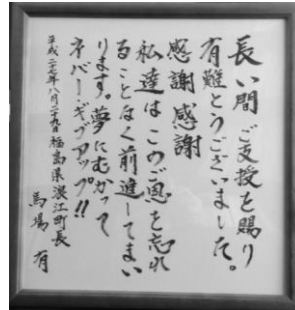 長い間ご支援を賜り
有難とうございました。
感謝感謝
私達はこのご恩を忘れ
ることなく前進してまい
ります。夢にむかって
ネバーギブアップ!!
平成二十七年八月二十九日福島県浪江町長
馬場有